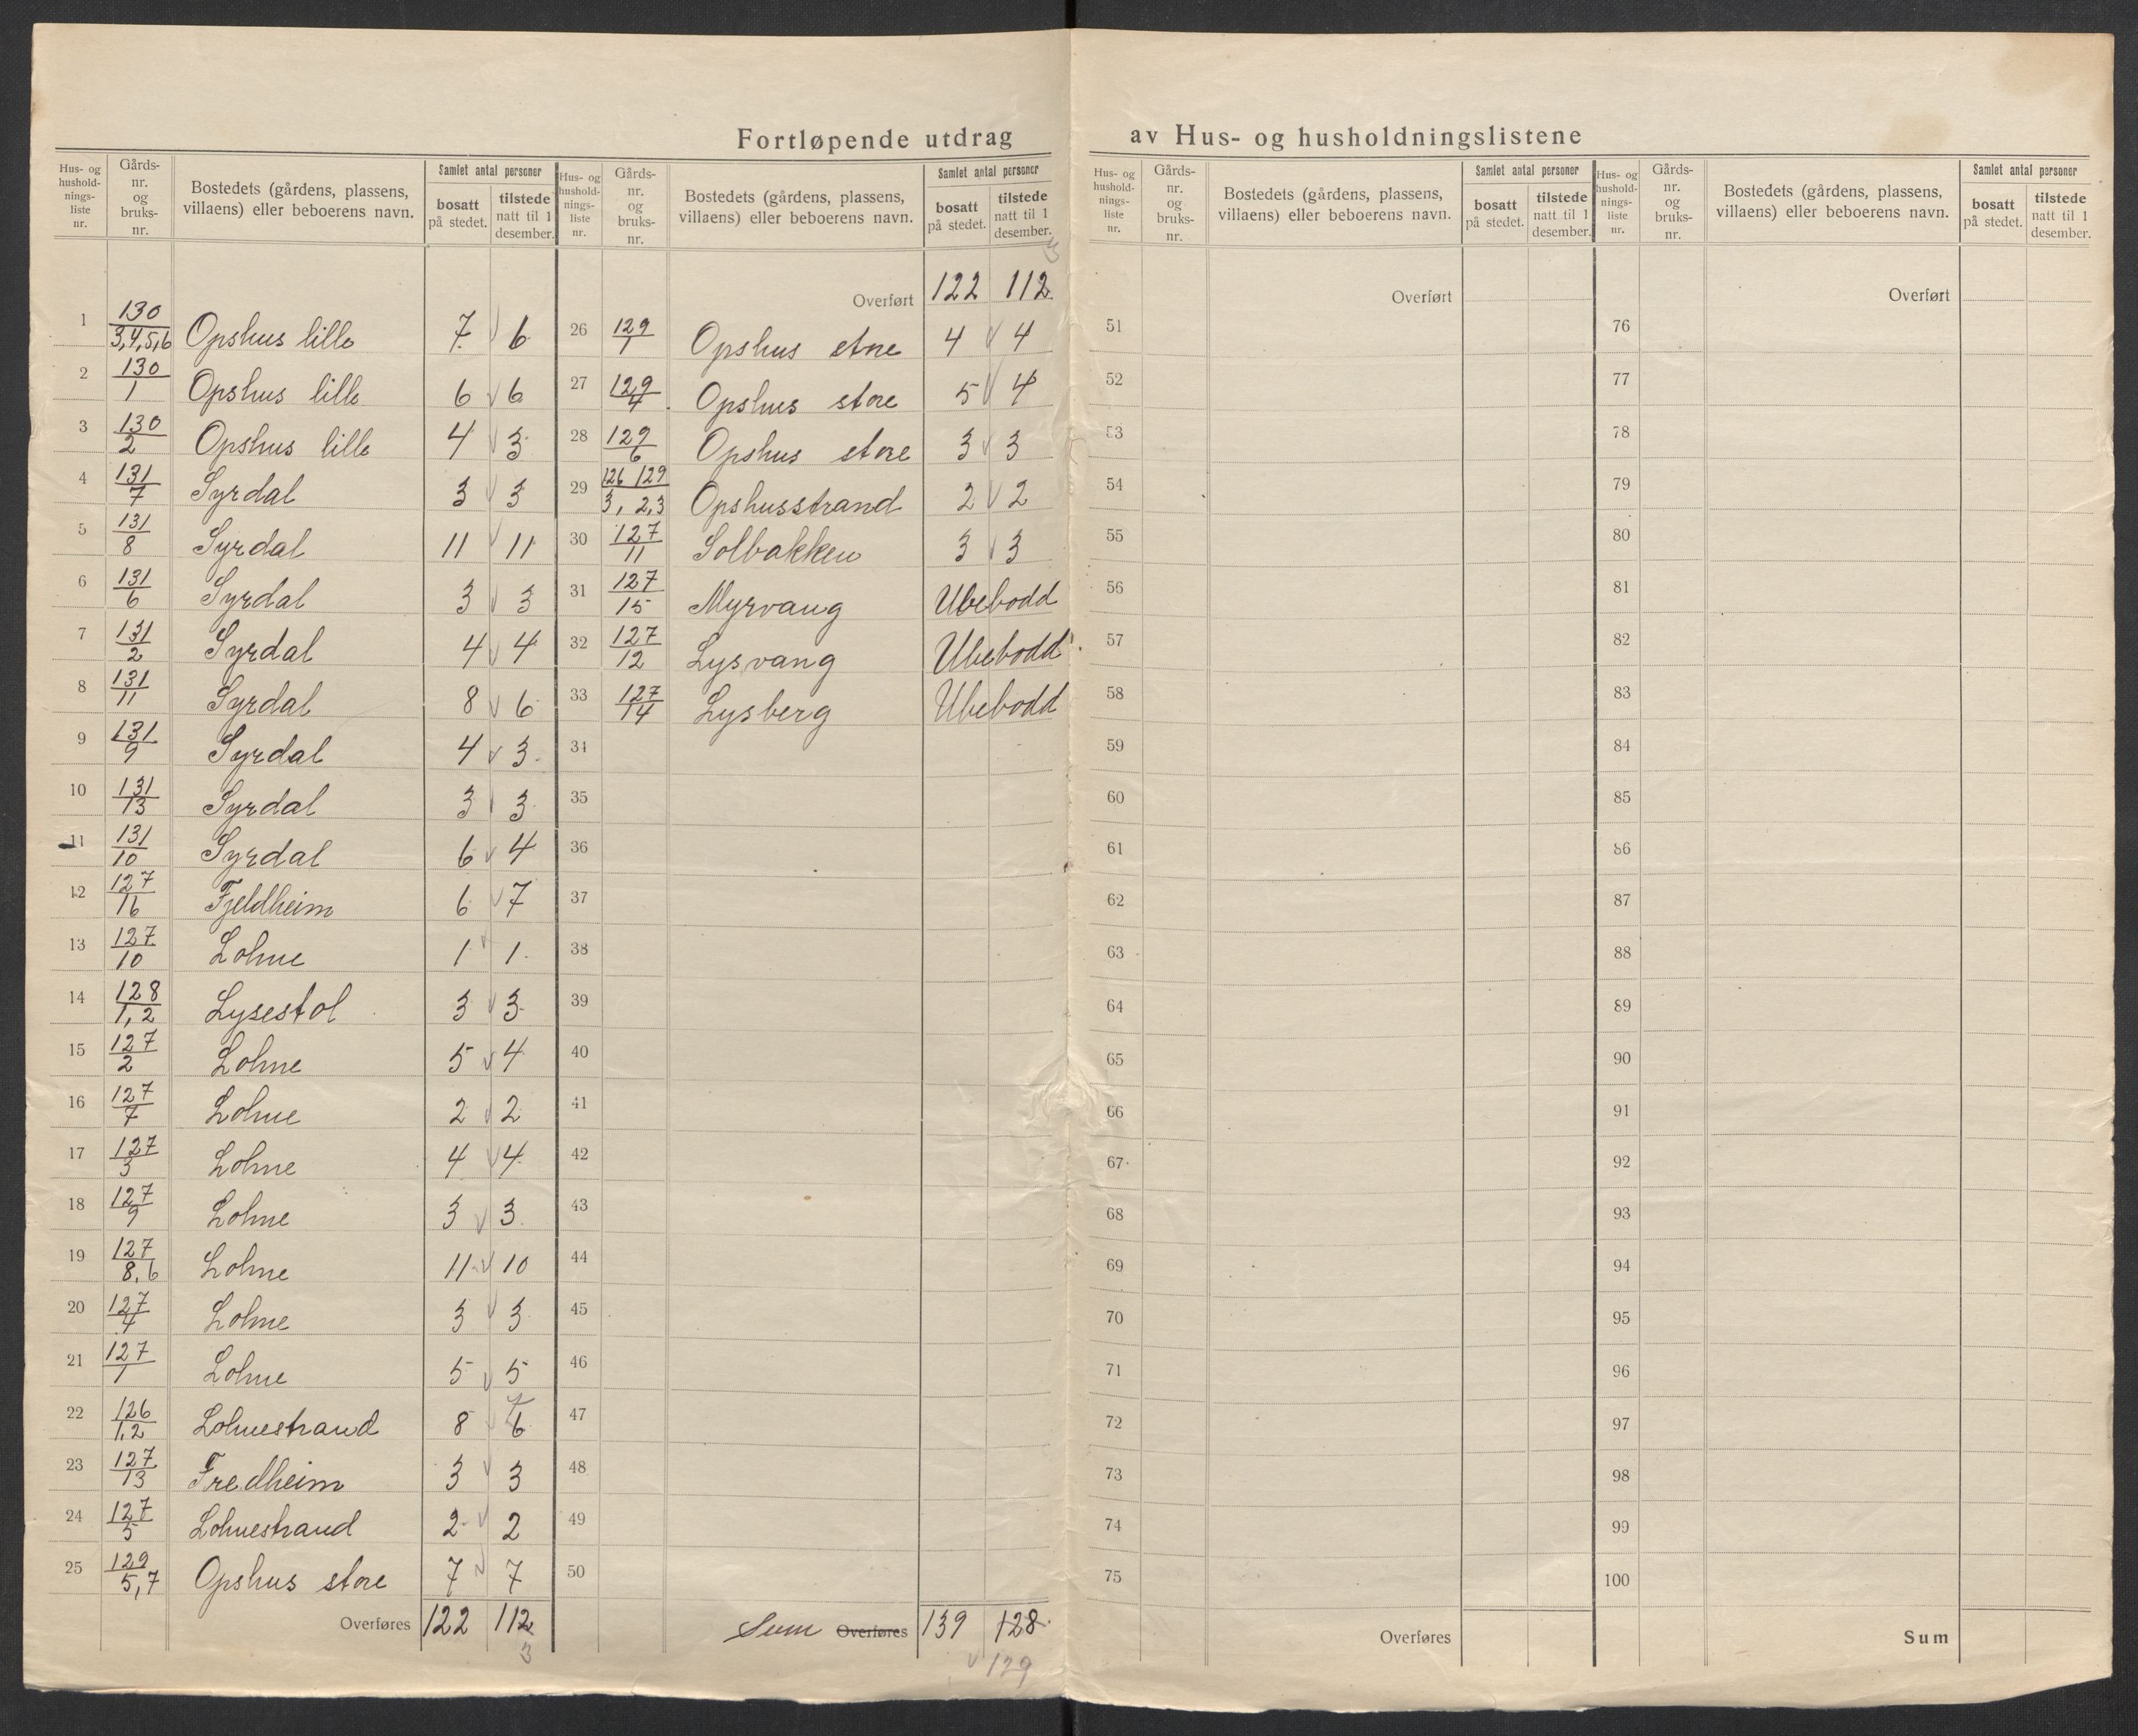 Fortløpende utdrag av Hus- og husholdningslistene
Hus- og hushold-nings-liste nr. | Gårds-nr. og bruks-nr. | Bostedets (gårdens, plassens, villaens) eller beboerens navn. | Samlet antal personer bosatt på stedet. | tilstede natt til 1 desember.
1 130/3,4,5,6 Opshus lille 7 6
2 130/1 Opshus lille 6 6
3 130/2 Opshus lille 4 3
4 131/7 Syrdal 3 3
5 131/8 Syrdal 11 11
6 131/6 Syrdal 3 3
7 131/2 Syrdal 4 4
8 131/11 Syrdal 8 6
9 131/9 Syrdal 4 3
10 131/13 Syrdal 3 3
11 131/10 Syrdal 6 4
12 127/16 Fjeldheim 6 7
13 127/10 Lohne 1 1
14 128/1,2 Lysestøl 3 3
15 127/2 Lohne 5 4
16 127/7 Lohne 2 2
17 127/3 Lohne 4 4
18 127/9 Lohne 3 3
19 127/8,6 Lohne 11 10
20 127/4 Lohne 3 3
21 127/1 Lohne 5 5
22 126/1,2 Lohnestrand 8 6 7
23 127/13 Fredheim 3 3
24 127/5 Lohnestrand 2 2
25 129/5,7 Opshus store 7 7
Overføres 122 112
3
Hus- og hushold-nings-liste nr. | Gårds-nr. og bruks-nr. | Bostedets (gårdens, plassens, villaens) eller beboerens navn. | Samlet antal personer bosatt på stedet. | tilstede natt til 1 desember.
3
Overført 122 112
26 129/1 Opshus store 4 4
27 129/4 Opshus store 5 4
28 129/6 Opshus store 3 3
29 126 129/3, 2,3 Opshusstrand 2 2
30 127/11 Solbakken 3 3
31 127/15 Myrvang Ubebodd
32 127/12 Lysvang Ubebodd
33 127/14 Lysberg Ubebodd
34
35
36
37
38
39
40
41
42
43
44
45
46
47
48
49
50
Sum Overføres 139 128
129
Hus- og hushold-nings-liste nr. | Gårds-nr. og bruks-nr. | Bostedets (gårdens, plassens, villaens) eller beboerens navn. | Samlet antal personer bosatt på stedet. | tilstede natt til 1 desember.
Overført
51
52
53
54
55
56
57
58
59
60
61
62
63
64
65
66
67
68
69
70
71
72
73
74
75
Overføres
Hus- og hushold-nings-liste nr. | Gårds-nr. og bruks-nr. | Bostedets (gårdens, plassens, villaens) eller beboerens navn. | Samlet antal personer bosatt på stedet. | tilstede natt til 1 desember.
Overført
76
77
78
79
80
81
82
83
84
85
86
87
88
89
90
91
92
93
94
95
96
97
98
99
100
Sum